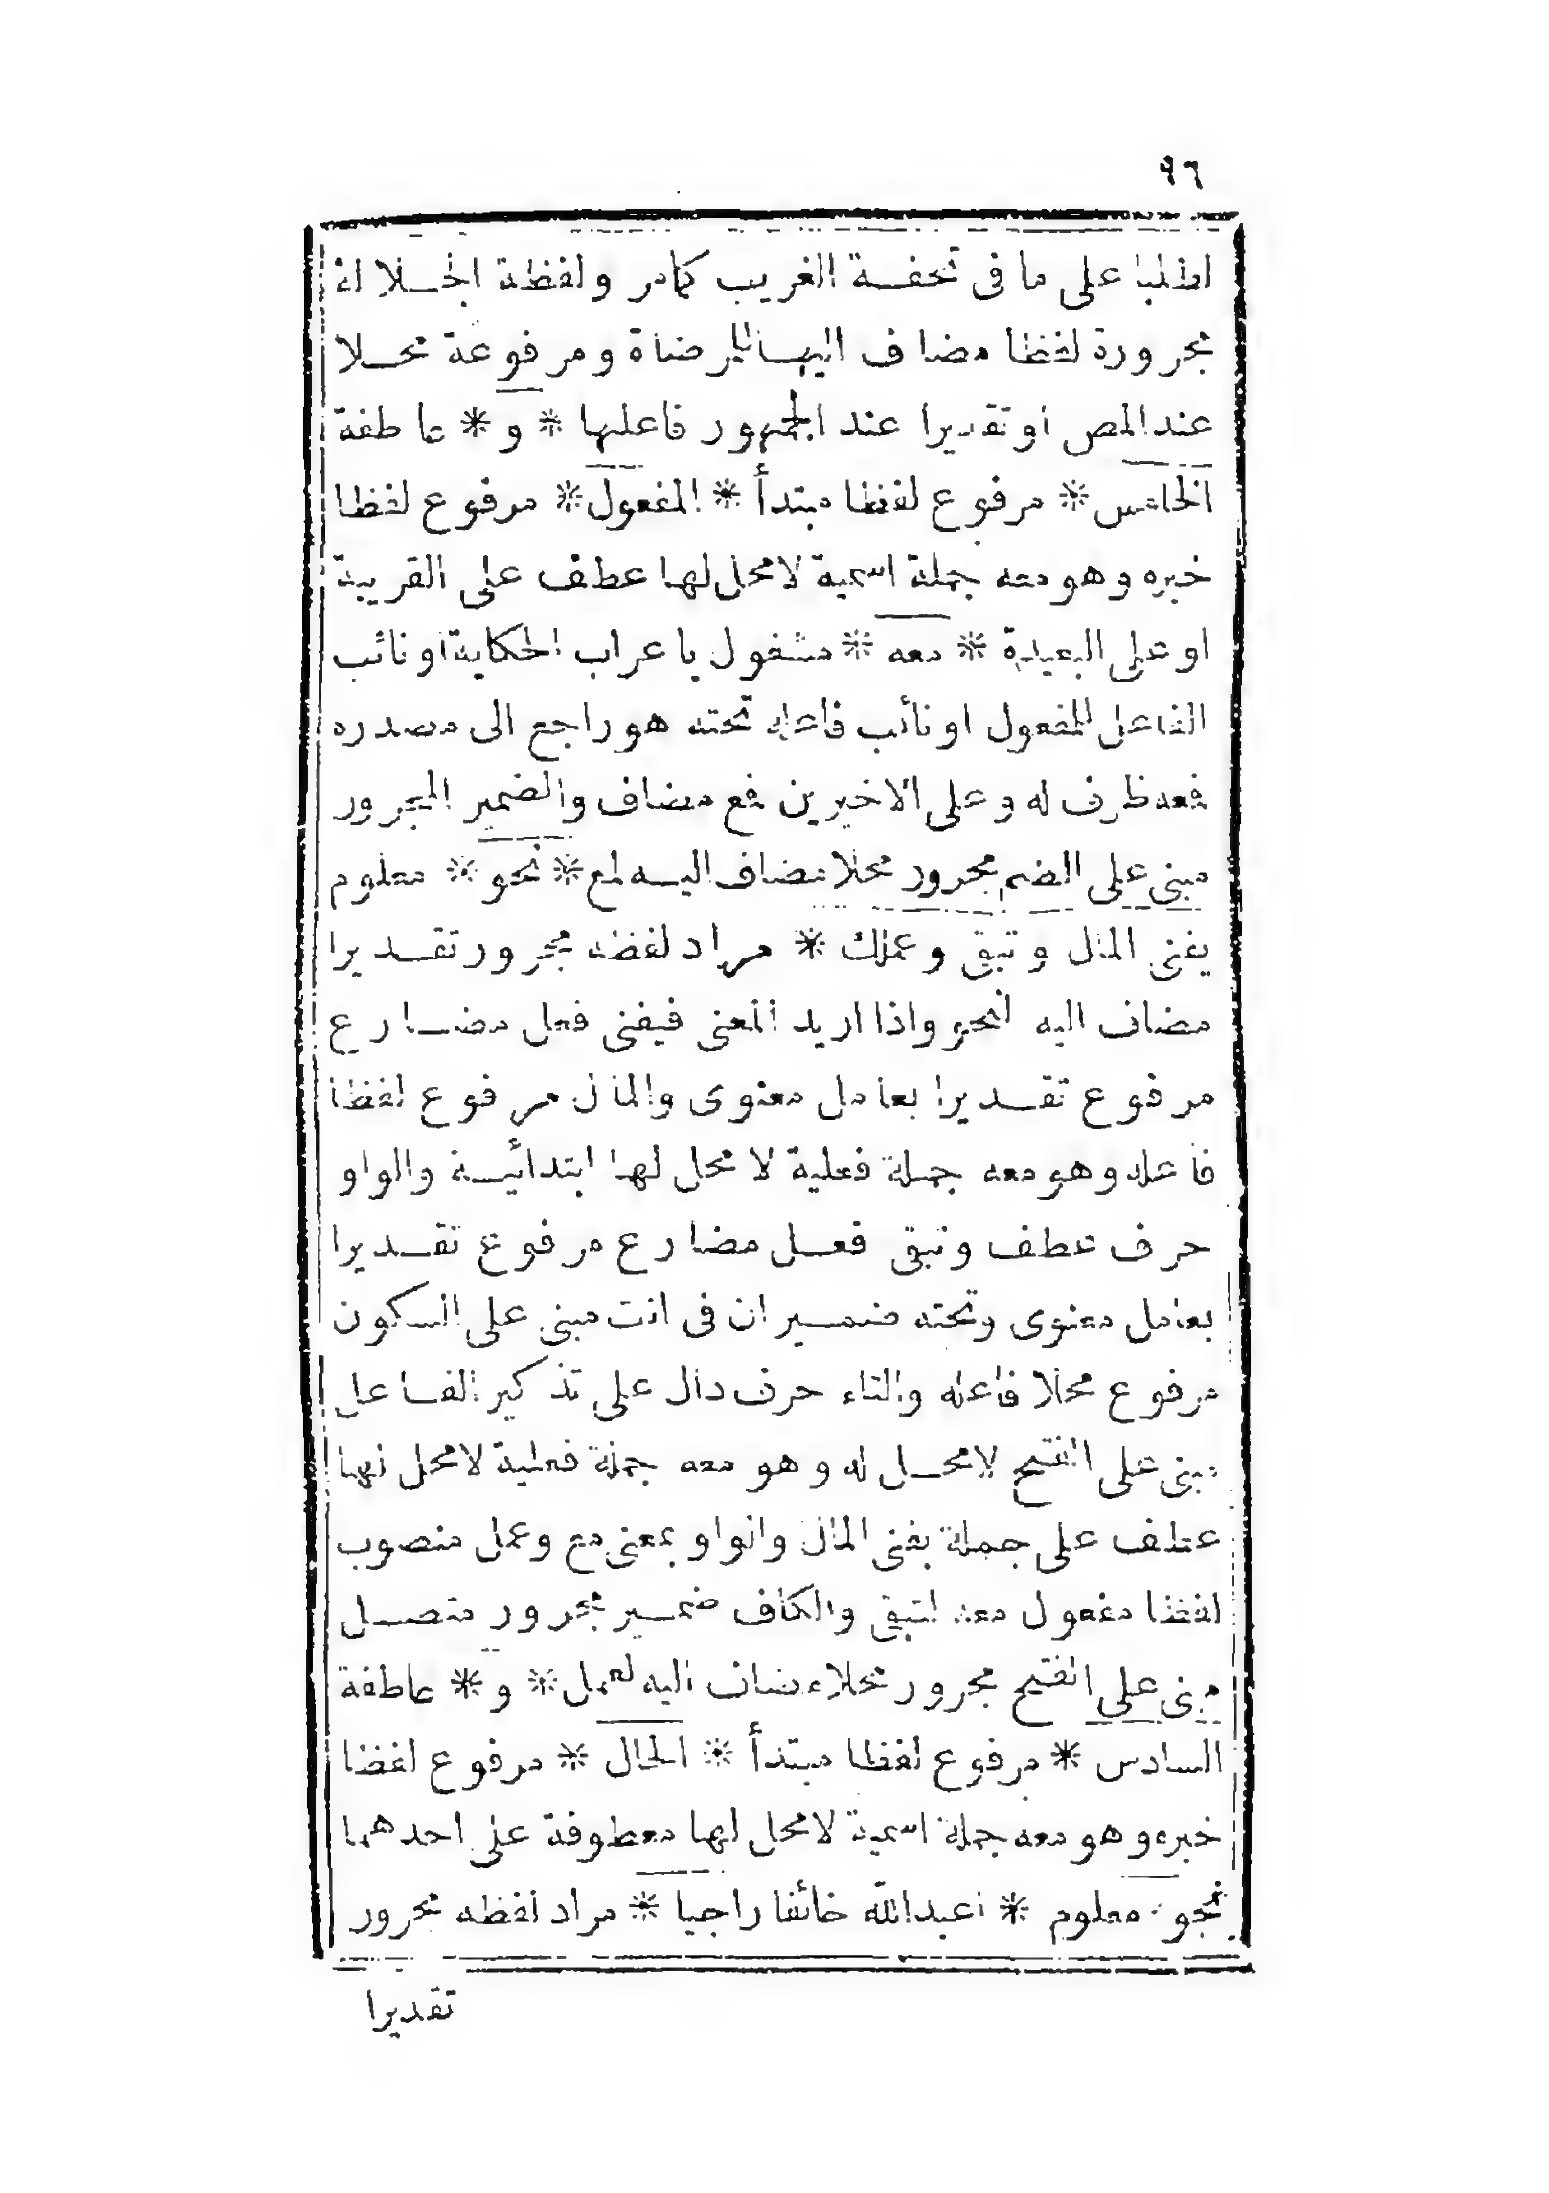 ٩٦
اطلبا على ما فى تحفة الغريب كمامر ولفظة الجلالة
مجرورة لفظا مضاف اليها لمرضاة ومرفوعة محلا
عندالمص او تقديرا عند الجمهور فاعلها * و * عاطفة
الخامس * مرفوع لفظا مبتدأ * المفعول * مرفوع لفظا
خبره وهو معه جملة اسمية لامحل لها عطف على القريبة
او على البعيدة * معه * مشغول باعراب الحكاية او نائب
الفاعل للمفعول او نائب فاعله تحته هو راجع الى مصدره
فمعه ظرف له وعلى الاخيرين فمع مضاف والضمير المجرور
مبنى على الضم مجرور محلا مضاف اليه لمع * نحو * معلوم
يفنى المال وتبقى وعملك * مراد لفظه مجرور تقديرا
مضاف اليه لنحو واذا اريد المعنى فيفنى فعل مضارع
مرفوع تقديرا بعامل معنوى والمال مرفوع لفظا
فاعله وهو معه جملة فعلية لا محل لها ابتدائية والواو
حرف عطف وتبقى فعل مضارع مرفوع تقديرا
بعامل معنوى وتحته ضمير ان فى انت مبنى على السكون
مرفوع محلا فاعله والتاء حرف دال على تذكير الفاعل
مبنى على الفتح لامحل له وهو معه جملة فعلية لامحل لها
عطف على جملة يفنى المال والواو بمعنى مع وعمل منصوب
لفظا مفعول معه لتبقى والكاف ضمير مجرور متصل
مبنى على الفتح مجرور محلا مضاف اليه لعمل * و * عاطفة
السادس * مرفوع لفظا مبتدأ * الحال * مرفوع لفظا
خبره وهو معه جملة اسمية لامحل لها معطوفة على احدهما
نحو * معلوم * اعبدالله خائفا راجيا * مراد لفظه مجرور
تقديرا